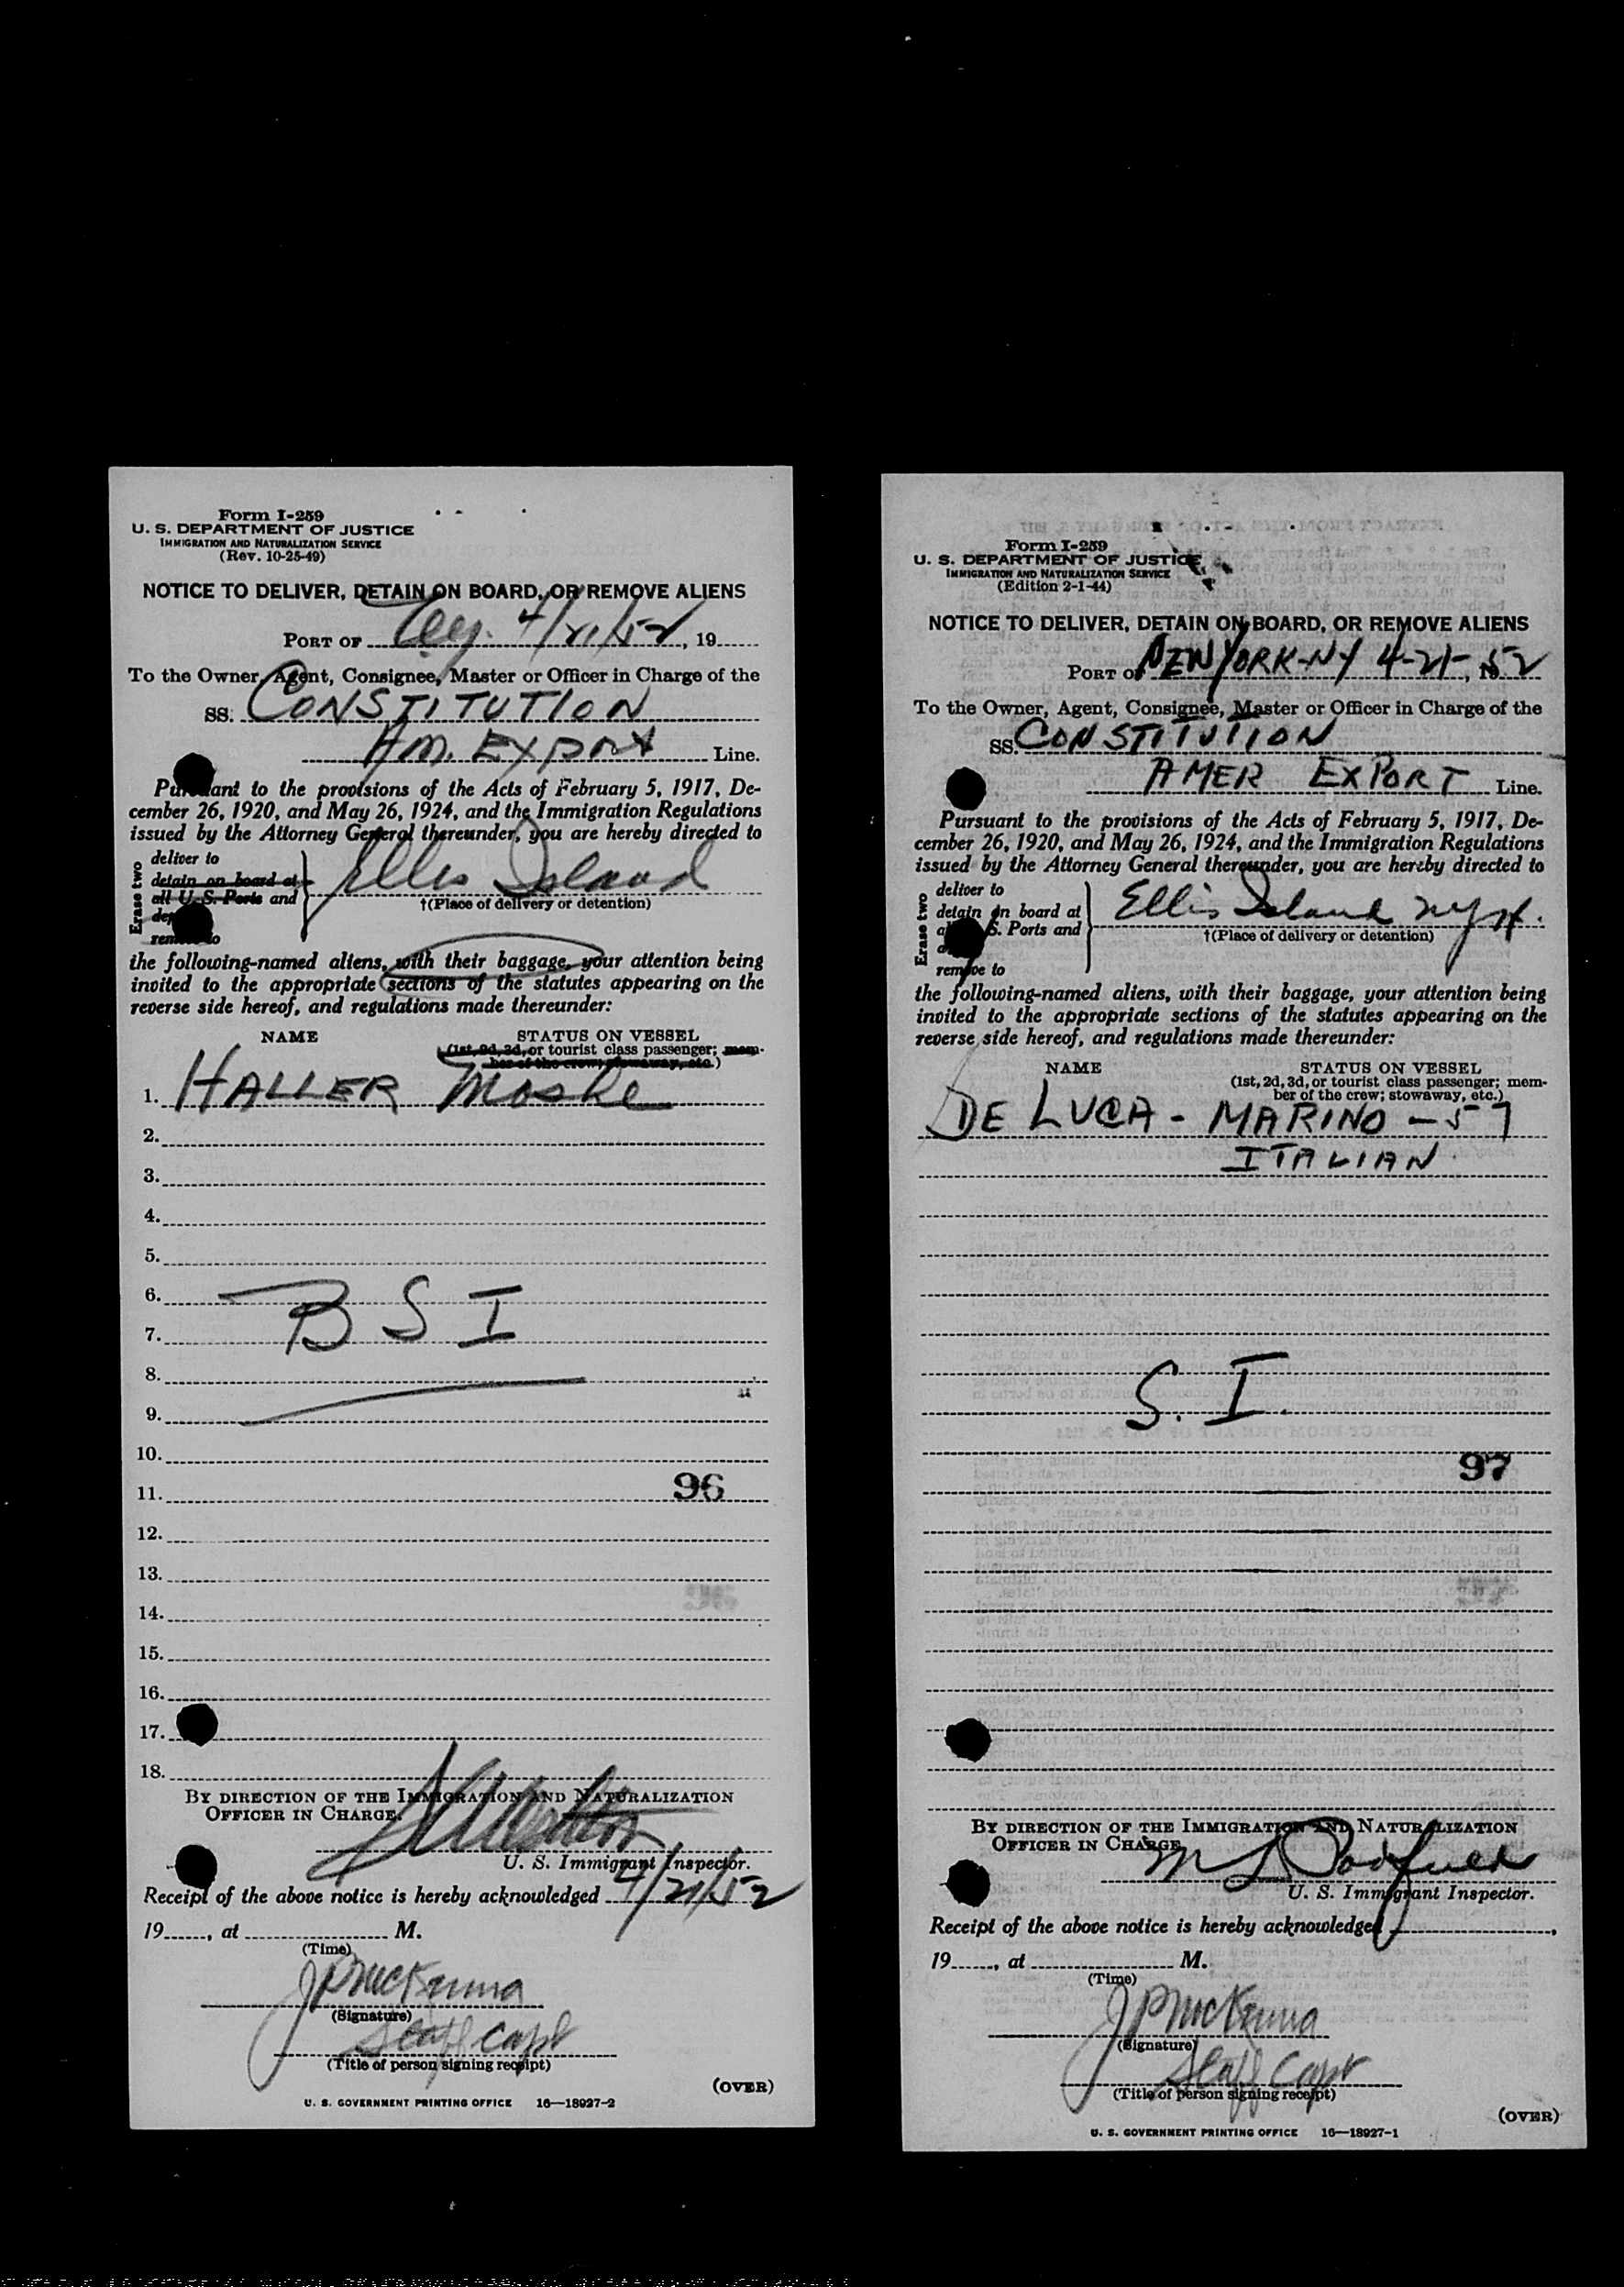 Form I-259
U. S. DEPARTMENT OF JUSTICE
IMMIGRATION AND NATURALIZATION SERVICE
(Rev. 10-25-49)
NOTICE TO DELIVER, DETAIN ON BOARD, OR REMOVE ALIENS
PORT OF 4/21/52, 19
To the Owner, Agent, Consignee, Master or Officer in Charge of the
SS. CONSTITUTION
AM. EXPORT Line.
Pursuant to the provisions of the Acts of February 5, 1917, De-
cember 26, 1920, and May 26, 1924, and the Immigration Regulations
issued by the Attorney General thereunder, you are hereby directed to
Erase two
deliver to
detain on board at
all U. S. Ports and
remove to
Ellis Island
†(Place of delivery or detention)
the following-named aliens, with their baggage, your attention being
invited to the appropriate sections of the statutes appearing on the
reverse side hereof, and regulations made thereunder:
NAME STATUS ON VESSEL
(1st, 2d, 3d, or tourist class passenger; mem-
ber of the crew; stowaway, etc.)
1. HALLER Moshe
2.
3.
4.
5.
6.
B S I
7.
8.
9.
10.
11. 96
12.
13.
14.
15.
16.
17.
18.
BY DIRECTION OF THE IMMIGRATION AND NATURALIZATION
OFFICER IN CHARGE.
U. S. Immigrant Inspector.
Receipt of the above notice is hereby acknowledged 4/21/52
19, at M.
(Time)
J P McKenna
(Signature)
Staff Capt
(Title of person signing receipt)
(OVER)
U. S. GOVERNMENT PRINTING OFFICE 16—18927-2
Form I-259
U. S. DEPARTMENT OF JUSTICE
IMMIGRATION AND NATURALIZATION SERVICE
(Edition 2-1-44)
NOTICE TO DELIVER, DETAIN ON BOARD, OR REMOVE ALIENS
PORT OF NEW YORK-NY 4-21-, 1952
To the Owner, Agent, Consignee, Master or Officer in Charge of the
SS. CONSTITUTION
AMER EXPORT Line.
Pursuant to the provisions of the Acts of February 5, 1917, De-
cember 26, 1920, and May 26, 1924, and the Immigration Regulations
issued by the Attorney General thereunder, you are hereby directed to
Erase two
deliver to
detain on board at
S. Ports and
remove to
Ellis Island NYH.
†(Place of delivery or detention)
the following-named aliens, with their baggage, your attention being
invited to the appropriate sections of the statutes appearing on the
reverse side hereof, and regulations made thereunder:
NAME STATUS ON VESSEL
(1st, 2d, 3d, or tourist class passenger; mem-
ber of the crew; stowaway, etc.)
DE LUCA - MARINO - 57
ITALIAN.
S. I.
97
BY DIRECTION OF THE IMMIGRATION AND NATURALIZATION
OFFICER IN CHARGE.
U. S. Immigrant Inspector.
Receipt of the above notice is hereby acknowledged,
19, at M.
(Time)
J P McKenna
(Signature)
Staff Capt
(Title of person signing receipt)
(OVER)
U. S. GOVERNMENT PRINTING OFFICE 16—18927-1